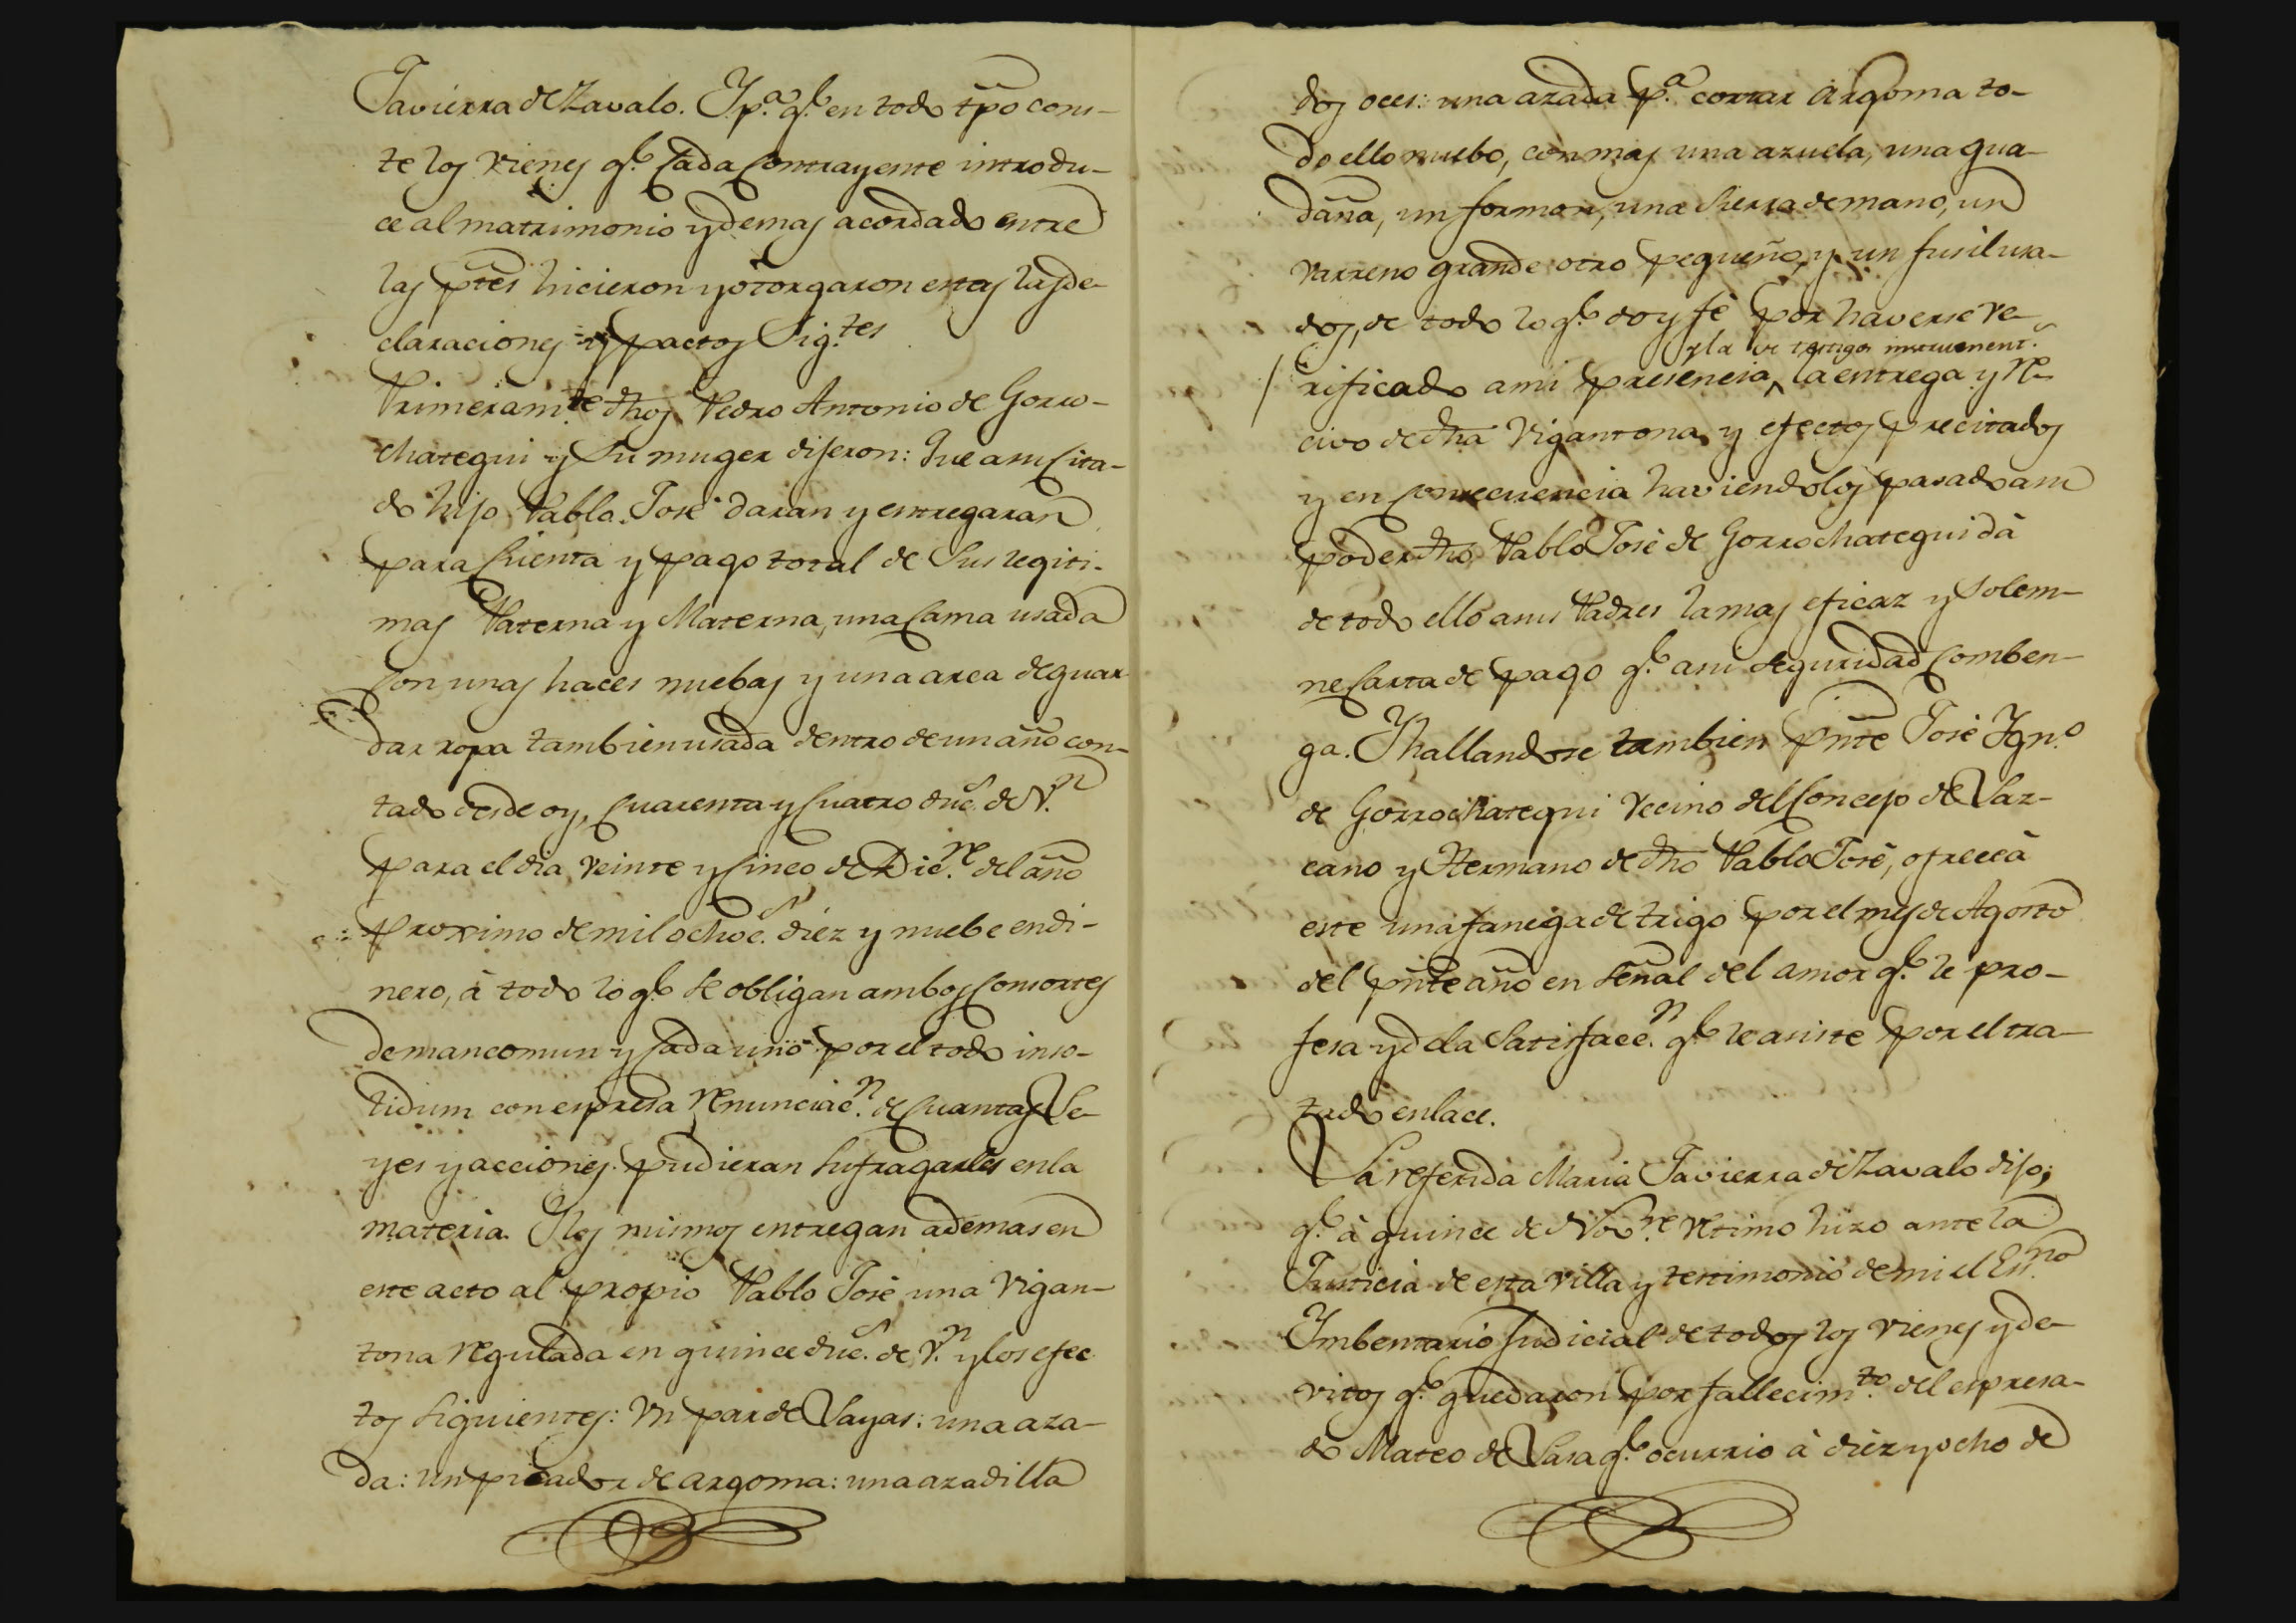 Javierra de Zavalo. Y p.ª q.e en todo tpo cons-
te los vienes q.e Cada Contrayente introdu-
ce al matrimonio y demas acordado entre
las ptes hicieron y otorgaron estas las de-
claraciones y pactos Sig.tes
Primeram.te dhos Pedro Antonio de Gorro-
chategui y Su muger dijeron: Que a su Cita-
do hijo Pablo José daran y entregaran
para Cuenta y pago total de Sus legiti-
mas Paterna y Materna, una Cama usada
Con unas haces nuebas y una arca de guar-
dar ropa tambien usada dentro de un año con-
tado desde oy, Cuarenta y Cuatro duc.s de V.n
para el dia veinte y Cinco de Dic.re del año
proximo de mil ochoc.s diez y nuebe en di-
nero, à todo lo q.e se obligan ambos Consortes
de mancomun y Cada uno por el todo inso-
lidum con espresa renunciac.n de Cuantas Le-
yes y acciones pudieran Sufragarles en la
materia. Y los mismos entregan ademas en
este acto al propio Pablo José una Vigan-
tona regulada en quince duc.s de V.n y los efec-
tos Siguientes: Un par de Layas: una aza-
da: un picador de argoma: una azadilla
dos oces: una azada p.ª cortar Argoma to-
do ello nuebo, con mas una azuela, una gua-
daña, un formon, una Sierra de mano, un
varreno grande otro pequeño, y un fusil usa-
dos, de todo lo q.e doy fé por haverse ve-
y la de testigos instrument.s
rificado a mi presencia, la entrega y re-
civo de dha Vigantona, y efectos precitados
y en Consecuencia haviendolos pasado a su
poder dho Pablo José de Gorrochategui dà
de todo ello a sus Padres la mas eficaz y Solem-
ne Carta de pago q.e a su Seguridad Comben-
ga. Y hallandose tambien pnte José Ygn.o
de Gorrochategui vecino del Concejo de Laz-
cano y Hermano de dho Pablo José, ofrece à
este una fanega de trigo por el mes de Agosto
del pnte año en Señal del amor q.e le pro-
fesa y de la Satisfacc.n q.e le asiste por el tra-
tado enlace.
La referida Maria Javierra de Zavalo dijo;
q.e à quince de Nov.re vltimo hizo ante la
Justicia de esta villa y testimonio de mi el Ess.no
Ymbentario Judicial de todos los vienes y de-
vitos q.e quedaron por fallecim.to del espresa-
do Mateo de Lasa q.e ocurrio à diez y ocho de